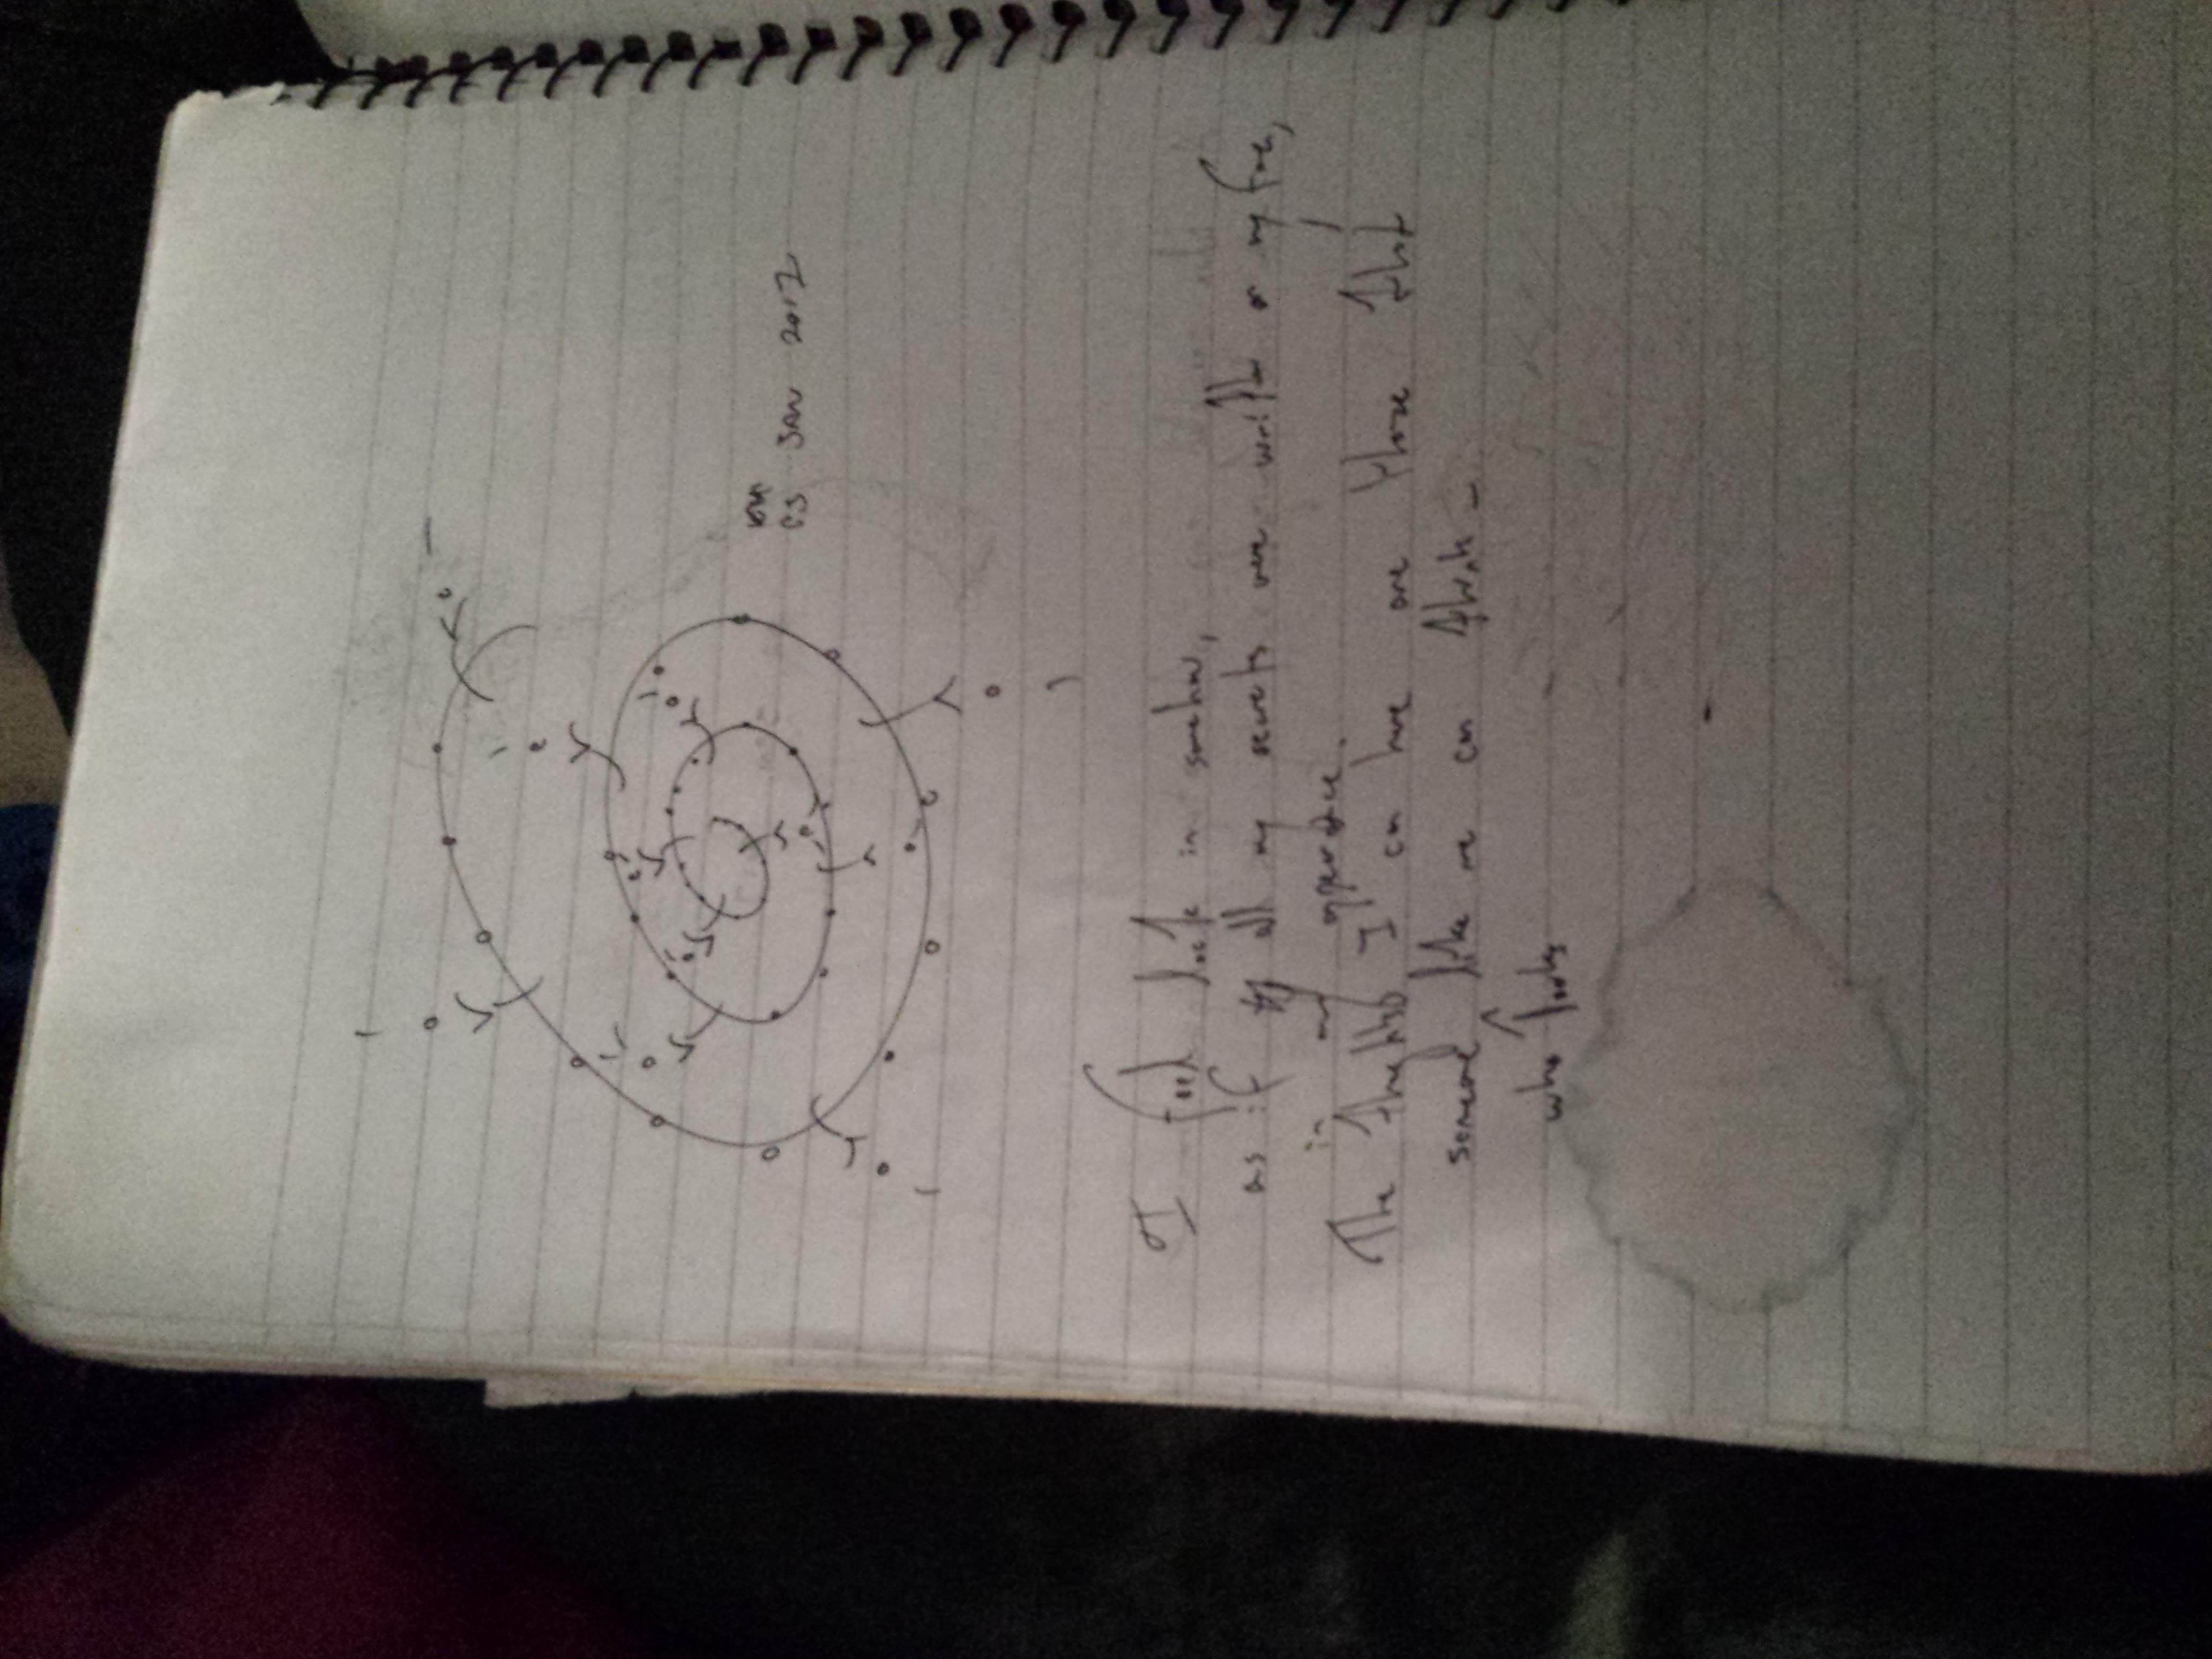 JAN 2017
I feel lock in somehow,
as if all my secrets were writt on my face,
in my apperance.
The thoughts I can have are those that
someone like me can think -
who looks